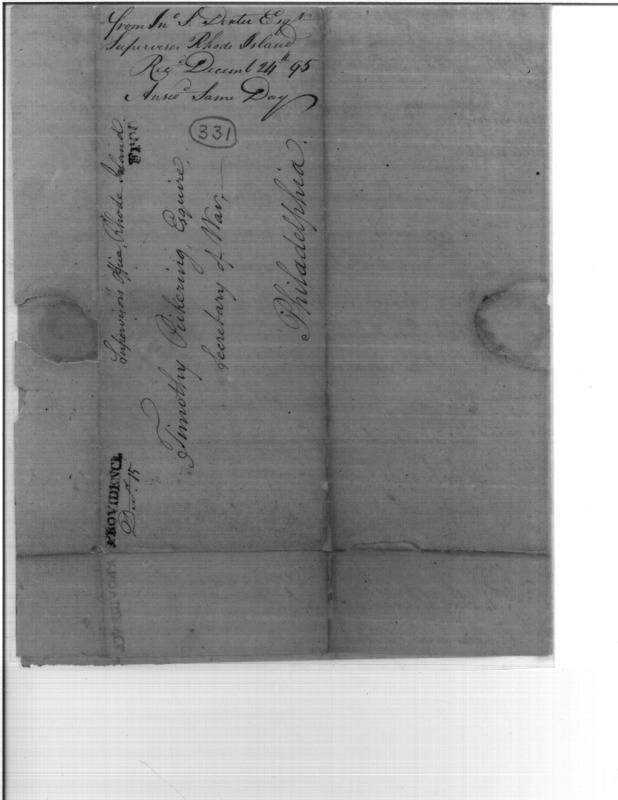 from Jnº S. Dexter Esqr
Supervisor Rhode Island
Recd Decembr 24th 95
Answd Same Day
331
Supervisors Office, Rhode Island.
Free
Timothy Pickering, Esquire,
Secretary of War,
Philadelphia.
PROVIDENCE
Decr. 15
PROVIDENCE